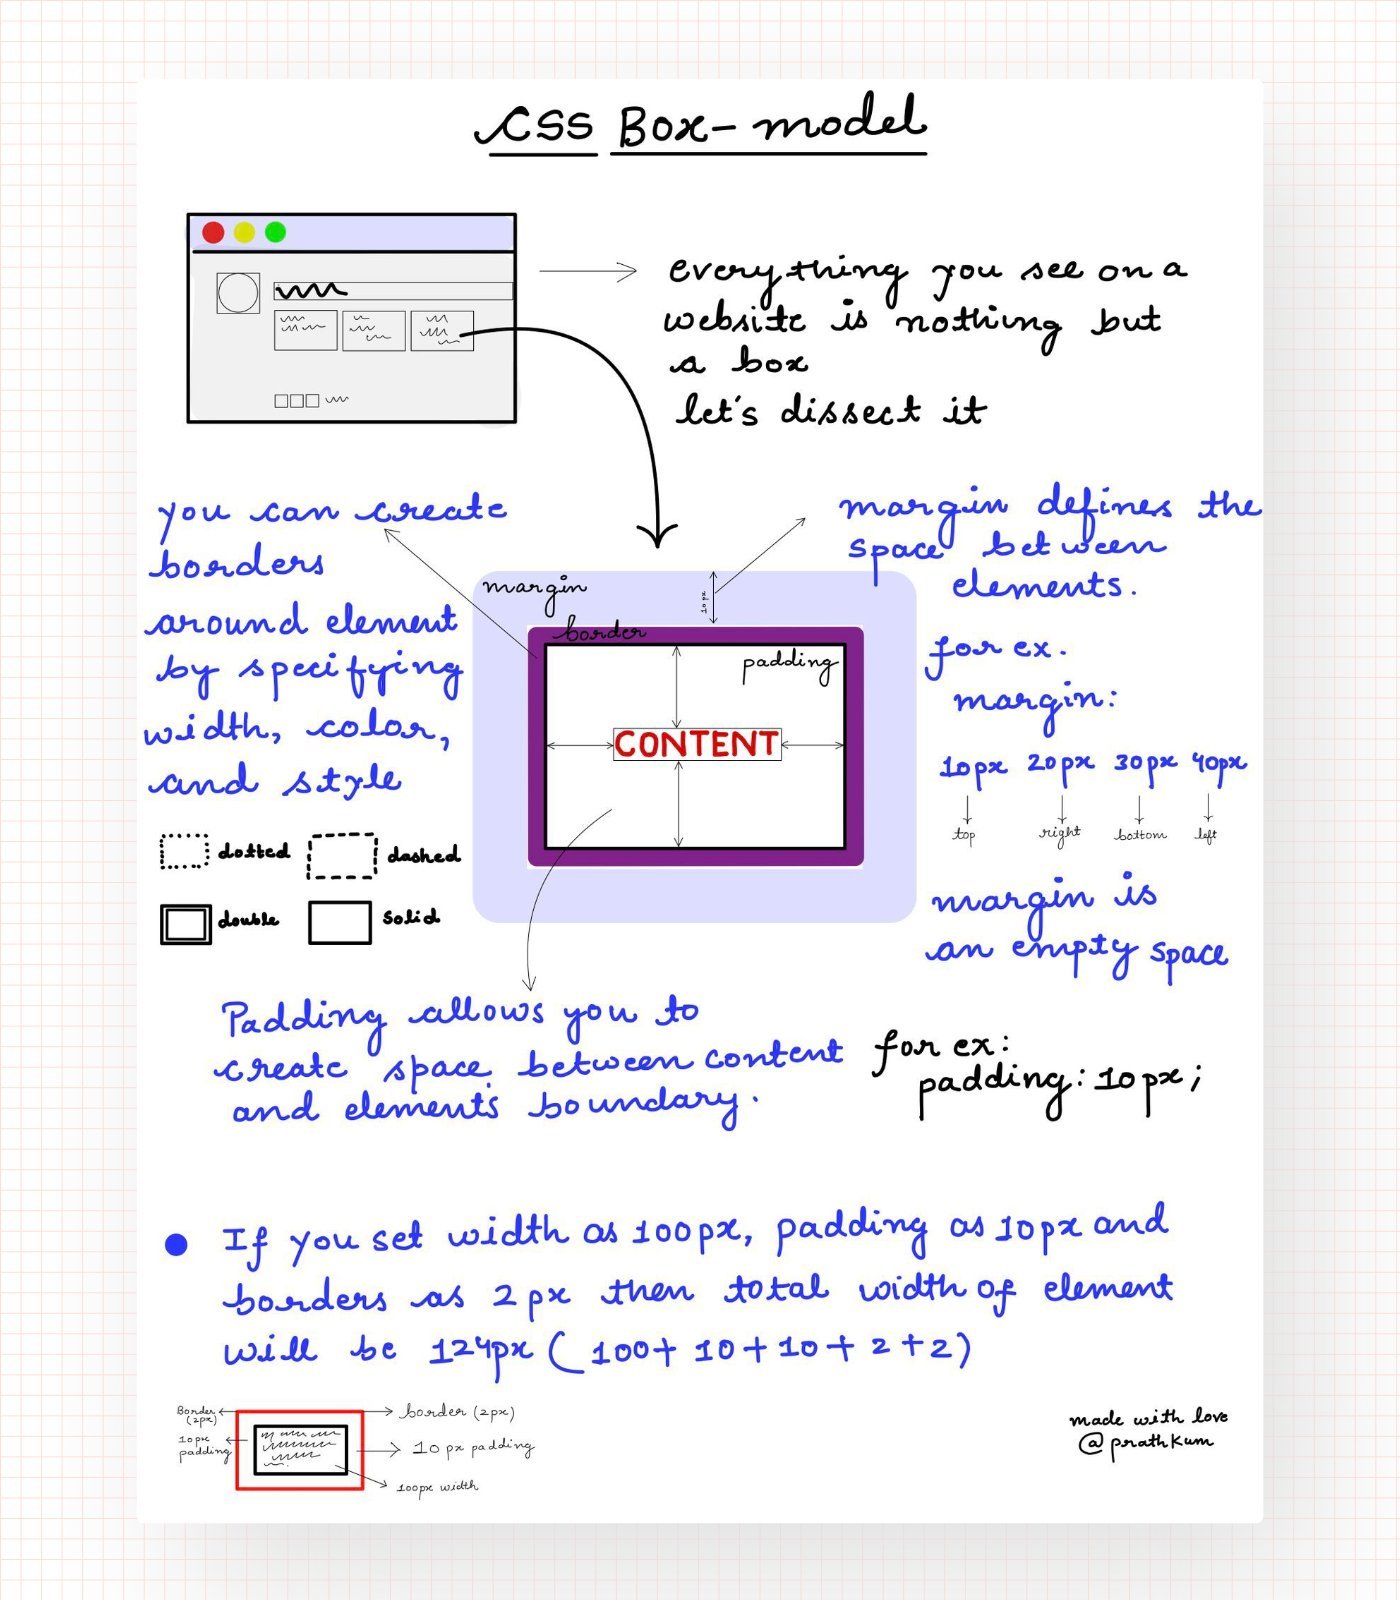 CSS Box-model
everything you see on a
website is nothing but
a box
let's dissect it
you can create
borders
around element
by specifying
width, color,
and style
dotted
dashed
double
solid
margin
10px
border
padding
CONTENT
margin defines the
space between
elements.
for ex.
margin:
10px 20px 30px 40px
top right bottom left
margin is
an empty space
Padding allows you to
create space between content
and elements boundary.
for ex:
padding: 10px;
If you set width as 100px, padding as 10px and
borders as 2px then total width of element
will be 124px (100+ 10+10+2+2)
Border
(2px)
10px
padding
border (2px)
10px padding
100px width
made with love
@prathkum